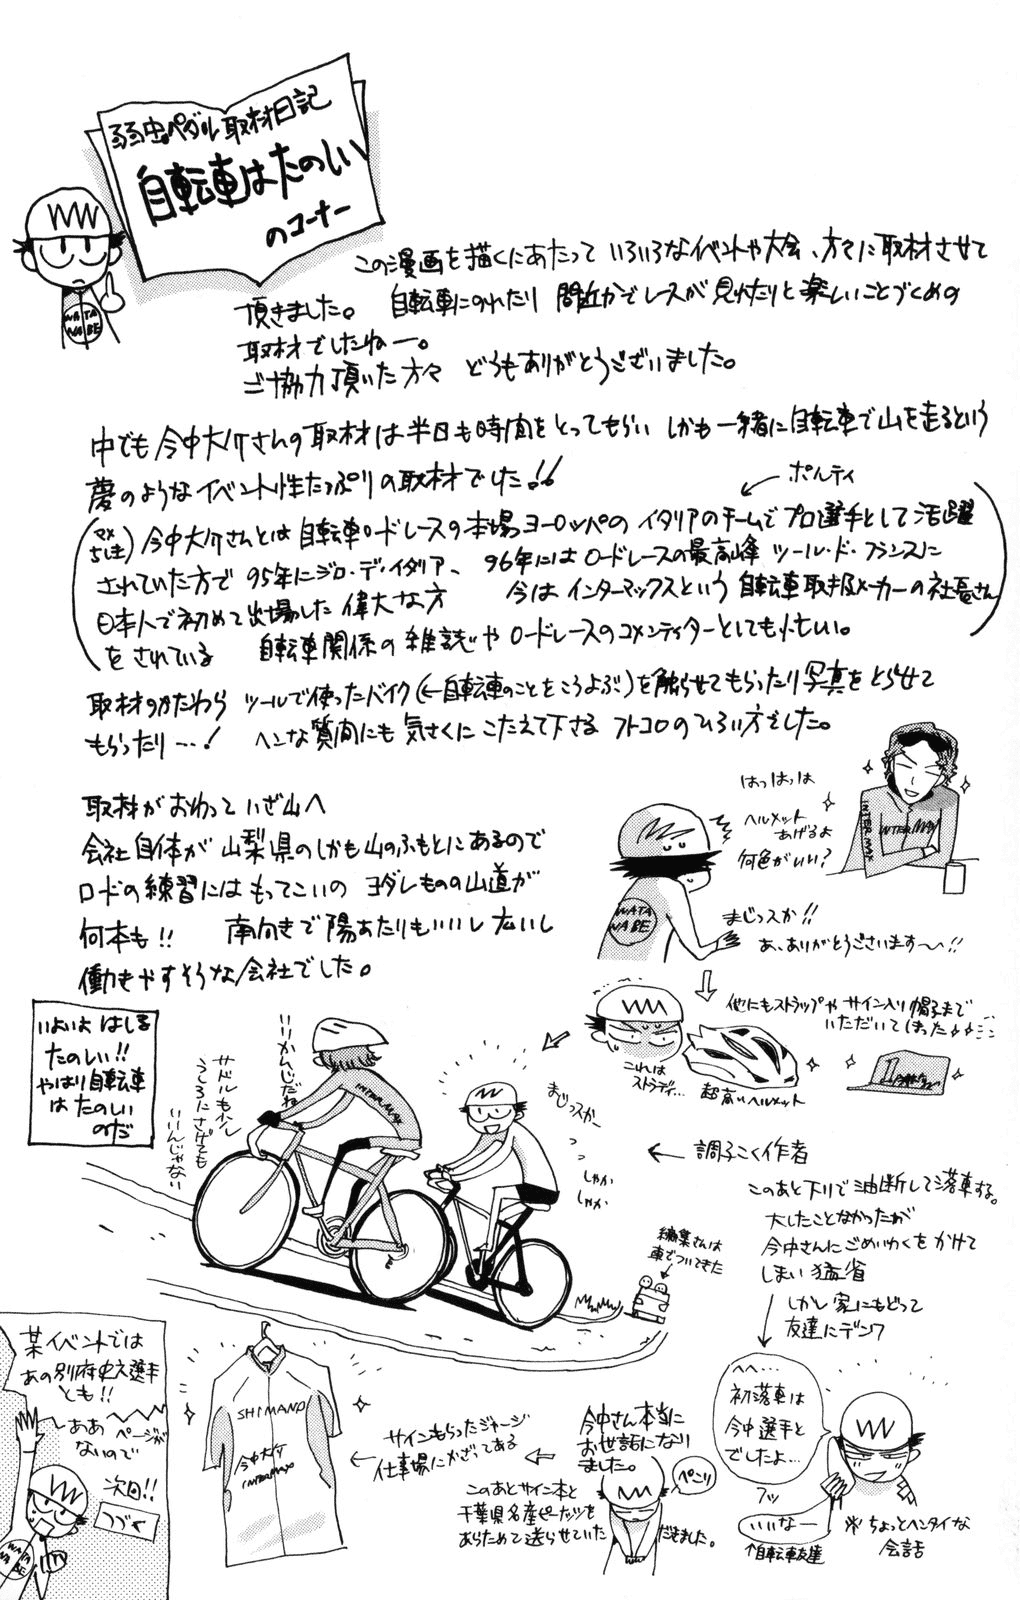 弱虫ペダル取材日記
自転車はたのしい
のコーナー
WATA
NABE
この漫画を描くにあたって いろいろなイベントや大会、方々に取材させて
頂きました。 自転車にのれたり 間近かでレースが見れたりと楽しいことづくめの
取材でしたねー。
ご協力頂いた方々 どうもありがとうございました。
中でも今中大介さんの取材は半日も時間をとってもらい しかも一緒に自転車で山を走るという
夢のようなイベント性たっぷりの取材でした!!
ポルティ
(マメちしき)今中大介さんとは自転車ロードレースの本場ヨーロッパのイタリアのチームでプロ選手として活躍
されていた方で 95年にジロ・デ・イタリア、 96年にはロードレースの最高峰 ツール・ド・フランスに
日本人で初めて出場した偉大な方 今はインターマックスという自転車取扱メーカーの社長さん
をされている 自転車関係の雑誌やロードレースのコメンテイターとしても忙しい。
取材のかたわら ツールで使ったバイク(←自転車のことをこうよぶ)を触らせてもらったり写真をとらせて
もらったり…! ヘンな質問にも気さくにこたえて下さる フトコロのひろい方でした。
取材がおわって いざ山へ
会社自体が山梨県のしかも山のふもとにあるので
ロードの練習にはもってこいの ヨダレものの山道が
何本も!! 南向きで陽あたりもいいし広いし
働きやすそうな会社でした。
はっはっは
ヘルメット
あげるよ
何色がいい?
INTERMAX
INTERMAX
WATA
NABE
まじっスか!!
あ、ありがとうございます〜!!
他にもストラップやサイン入り帽子まで
いただいてしまった
これは
ストラディ…
超高いヘルメット
いよいよ はしる
たのしい!!
やはり自転車
は たのしい
のだ
いいかんじだね
サドルもう少し
うしろにさげても
いいんじゃない
INTERMAX
まじっスかー
しゃか
しゃか
編集さんは
車でついてきた
← 調子こく作者
このあと下りで油断して落車する。
大したことなかったが
今中さんにごめいわくをかけて
しまい猛省
しかし家にもどって
友達にデンワ
へへ…
初落車は
今中選手と
でしたよ…
フッ
いいなー
↑自転車友達
※ちょっとヘンタイな
会話
今中さん本当に
お世話になり
ました。
ぺこり
このあとサイン本と
千葉県名産ピーナッツを
あらためて送らせていただきました。
サインもらったジャージ
仕事場にかざってある
SHIMANO
今中大介
INTERMAX
某イベントでは
あの別府史之選手
とも!!
ーああ ページが
ないので
次回!!
つづく
WATA
NABE